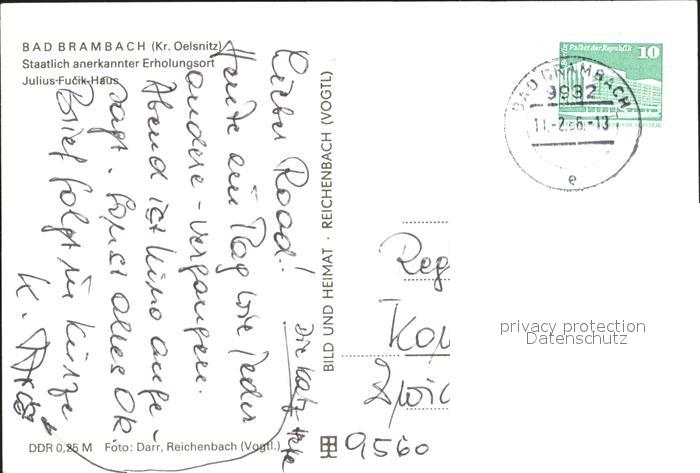 BAD BRAMBACH (Kr. Oelsnitz)
Staatlich anerkannter Erholungsort
Julius-Fučik-Haus
Palast der Republik 10
BAD BRAMBACH
9932
11.-2.86.-13
e
Lieber Raad!
Heute ein Tag wie jeder
andere - vergangen.
Abend ist Kino ange-
sagt. Sonst alles OK.
Brief folgt in Kürze
K.
Die
BILD UND HEIMAT · REICHENBACH (VOGTL)
Reg
Kon
Zwic
9560
privacy protection
Datenschutz
DDR 0,25 M Foto: Darr, Reichenbach (Vogtl.)